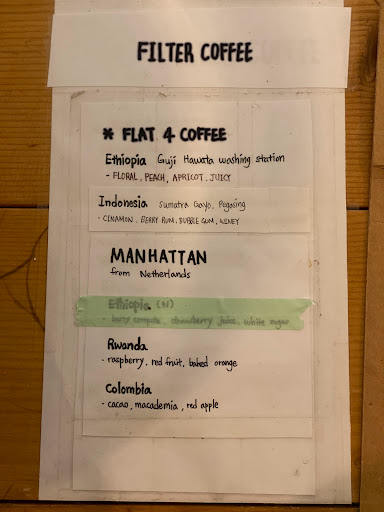 FILTER COFFEE
* FLAT 4 COFFEE
Ethiopia Guji Hawata washing station
- FLORAL, PEACH, APRICOT, JUICY
Indonesia Sumatra Gayo, Pegasing
- CINAMON, BERRY RUM, BUBBLE GUM, WINEY
MANHATTAN
from Netherlands
Ethiopia (N)
- berry compote, strawberry juice, white sugar
Rwanda
- raspberry, red fruit, baked orange
Colombia
- cacao, macademia, red apple